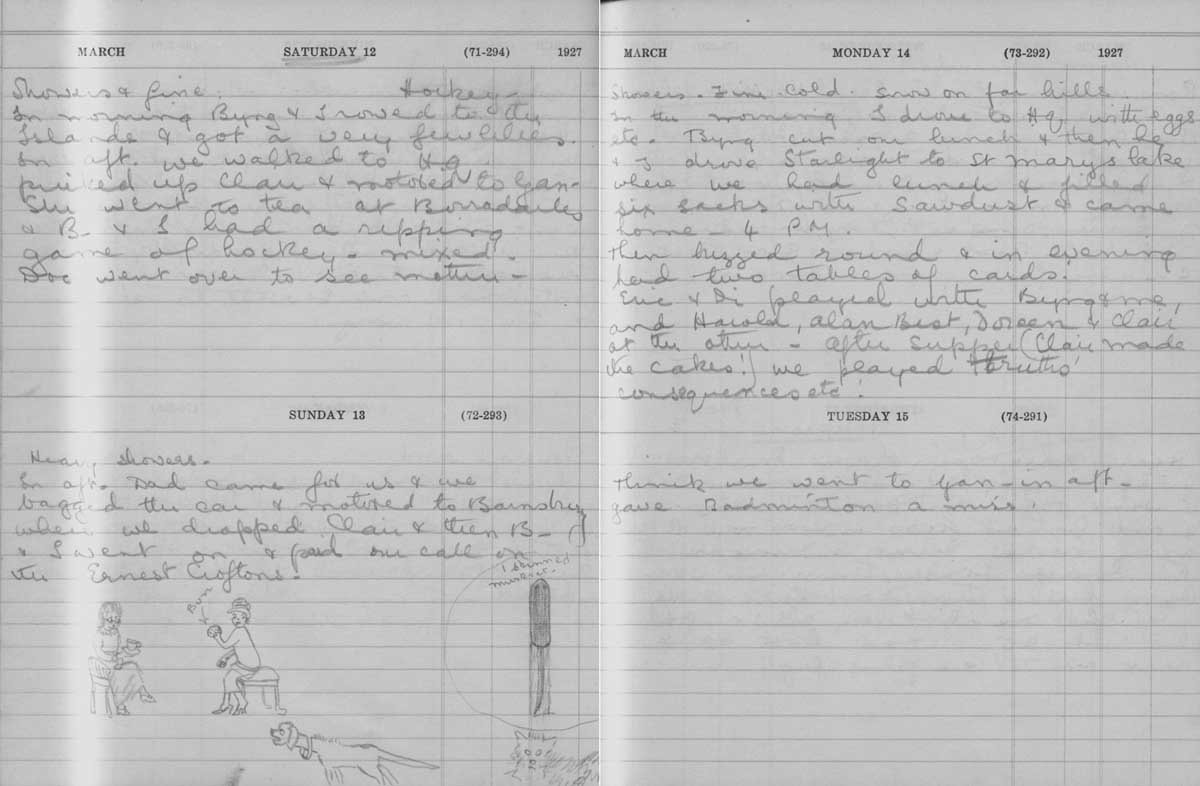 MARCH SATURDAY 12 (71-294) 1927
Showers & fine. Hockey-
In morning Byng & I rowed to the
Islands & got a very few lilies.
In aft. we walked to H.Q.
picked up Clair & motored to Gan-
She went to tea at Borradailes
& B- & I had a ripping
game of hockey - mixed.
Doc went over to see mother -
SUNDAY 13 (72-293)
Heavy showers.
In aft. Dad came for us & we
bagged the car & motored to Barnsbury
where we dropped Clair & then B-
& I went on & paid our call on
the Ernest Croftons.
I skinned
Bun
MARCH MONDAY 14 (73-292) 1927
Showers. Fine. Cold. Snow on far hills.
In the morning I drove to Hq. with eggs
etc. Byng cut our lunch & then he
& I drove Starlight to St Mary's Lake
where we had lunch & filled
six sacks with sawdust & came
home - 4 P.M.
Then buzzed round & in evening
had two tables of cards.
Eric & Di played with Byng & me,
and Harold, Alan Best, Doreen & Clair
at the other - After supper (Clair made
the cakes! we played truths
consequences etc!
TUESDAY 15 (74-291)
Think we went to Gan - in aft -
gave Badminton a miss!